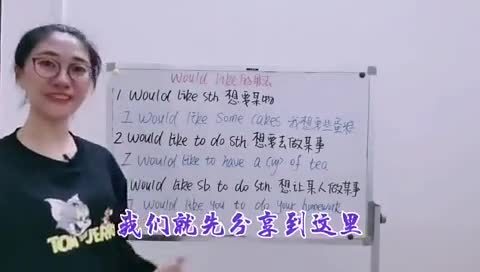 would like的用法
1. would like sth 想要某物
I would like some cakes 我想要些蛋糕
2. would like to do sth 想要去做某事
I would like to have a cup of tea
would like sb to do sth 想让某人做某事
I would like you to do your homework
我们就先分享到这里
TOM JERRY